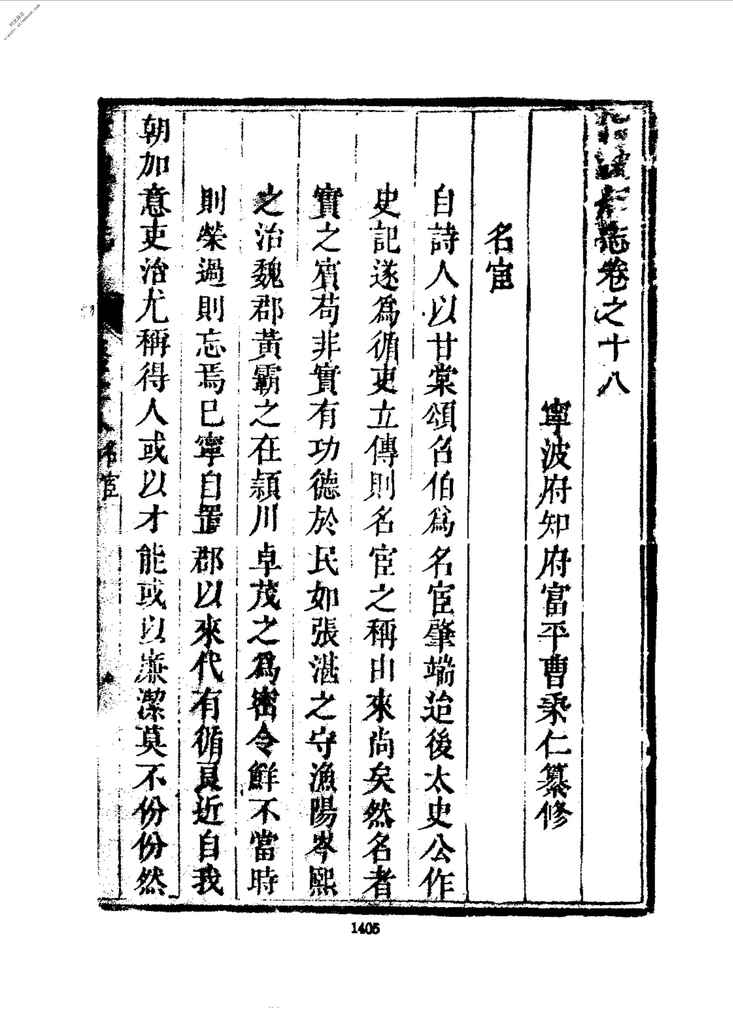 志卷之十八
寧波府知府富平曹秉仁纂修
名宦
自詩人以甘棠頌召伯爲名宦肇端迨後太史公作
史記遂爲循吏立傳則名宦之稱由來尚矣然名者
實之賓苟非實有功德於民如張湛之守漁陽岑熙
之治魏郡黃霸之在潁川卓茂之爲密令鮮不當時
則榮過則忘焉已寧自置郡以來代有循良近自我
朝加意吏治尤稱得人或以才能或以廉潔莫不份份然
名宦
1405